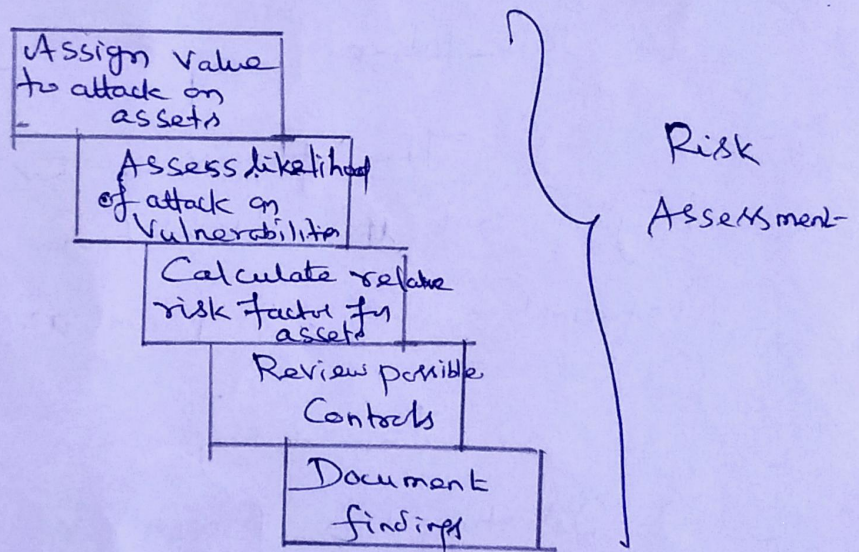 Assign value
to attack on
assets
Assess likelihood
of attack on
Vulnerabilities
Calculate relative
risk factor for
assets
Review possible
Controls
Document
findings
Risk
Assessment